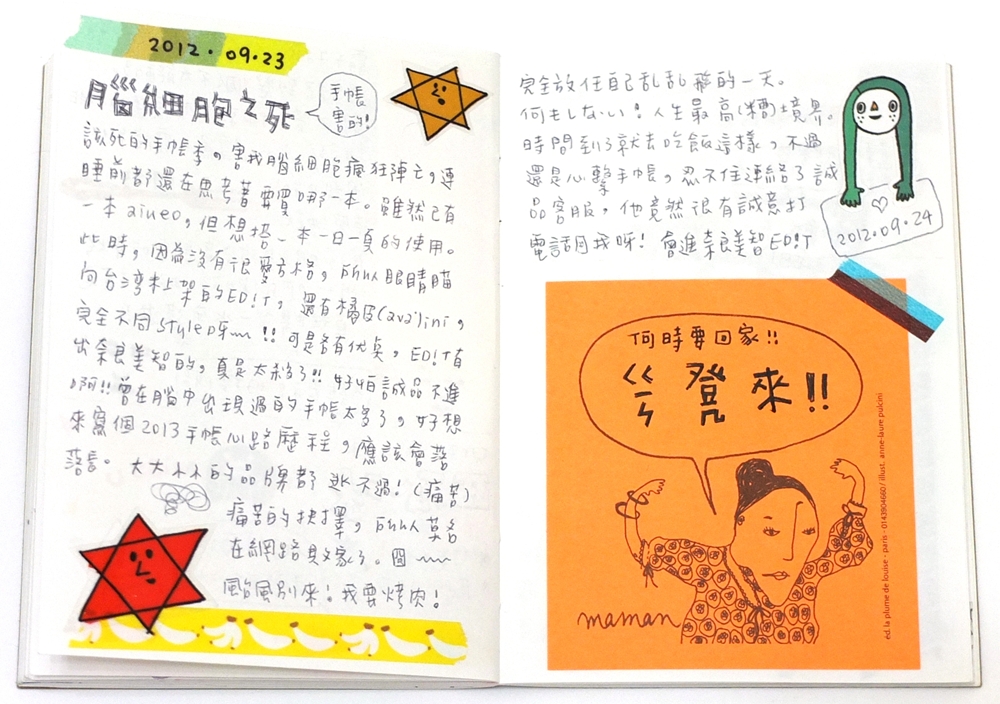 2012.09.23
腦細胞之死
手帳
害的!
該死的手帳季。害我腦細胞瘋狂陣亡,連
睡前都還在思考著要買哪一本。雖然已有
一本aiueo,但想搭一本一日一頁的使用。
此時,因為沒有很愛方格,所以眼睛瞄
向台湾未上架的ED!T,還有橘皮(ava)lini,
完全不同style呀~~!!可是各有优点,ED!T有
出奈良美智的,真是太殺了!!好怕誠品不進
啊!!曾在腦中出現過的手帳太多了,好想
來寫個2013手帳心路歷程,應該會落
落長。大大小小的品牌都逃不過!(痛苦)
痛苦的抉擇,所以莫名
在網路與文家了。囧~~
颱風別來!我要烤肉!
完全放任自己乱乱飛的一天。
何もしない!人生最高(糟)境界。
時間到了就去吃飯這樣,不過
還是心繫手帳,忍不住連絡了誠
品客服,他竟然很有誠意打
電話回我呀!會進奈良美智ED!T
2012.09.24
何時要回家!!
ㄍㄍㄣ 凳 來!!
maman
éd. la plume de louise - paris - 0143904660 / illust. anne-laure pulcini